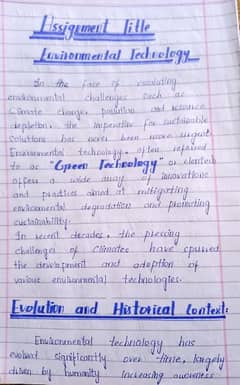 Assignment Title
Environmental Technology
In the face of escalating
environmental challenges such as
Climate change, pollution and resource
depletion, the imperative for sustainable
solutions has never been more urgent.
Environmental technology, often referred
to as "Green Technology" or cleantech
offers a wide array of innovations
and practices aimed at mitigating
environmental degradation and promoting
sustainability.
In recent decades, the pressing
challenges of Climates have spurred
the development and adoption of
various environmental technologies.
Evolution and Historical Context:
Environmental technology has
evolved significantly over time, largely
driven by humanity increasing awareness